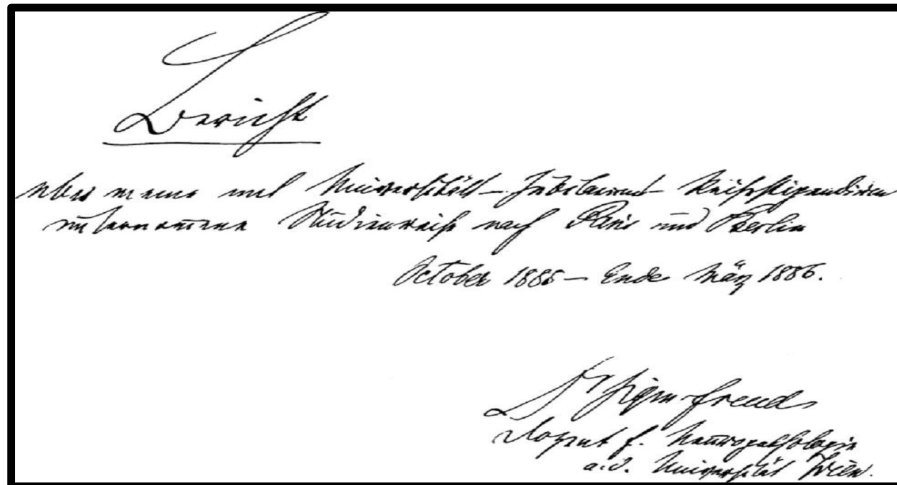 Bericht
über meine mit Universitäts-Jubiläums Reisestipendium
unternommene Studienreise nach Paris und Berlin
October 1885 – Ende März 1886.
Dr Sigm. Freud
Dozent f. Neuropathologie
a. d. Universität Wien.